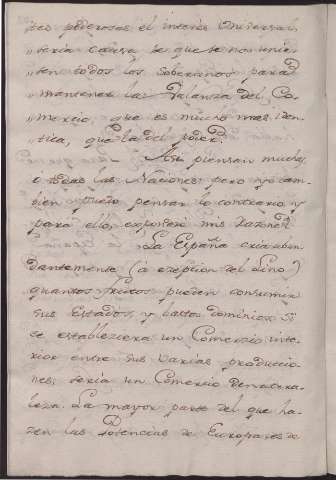 mas poderosas el interés Universal
seria causa de que se nos unie-
sen todos los Soberanos para
mantener la Valanza del Co-
mercio, que es mucho mas iden-
tica, que la del poder.
Asi piensan muchos
todas las Naciones pero yo tam-
bien puedo pensar lo contrario y
para ello, expondré mis razones
La España cria abun-
dantemente (á exepcion del Lino)
quantos frutos pueden consumir
sus Estados, y bastos dominios. Si
se estableziera un Comercio inte-
rior entre sus varias produccio-
nes, seria un Comercio de natura-
leza. La mayor parte del que ha-
zen las Potencias de Europa es de